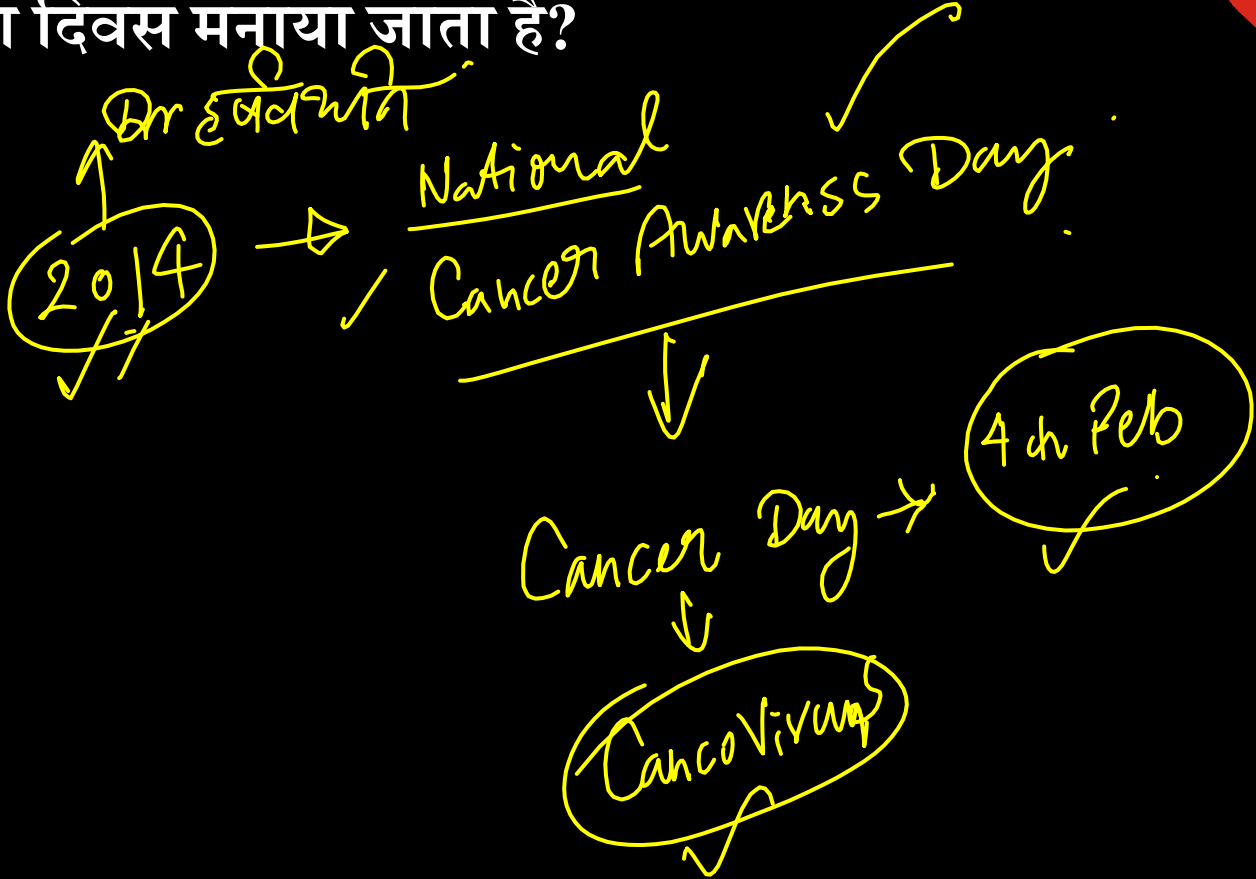 ा दिवस मनाया जाता है?
Dr हर्षवर्धन
2014 → National
Cancer Awareness Day
Cancer Day → 4th Feb